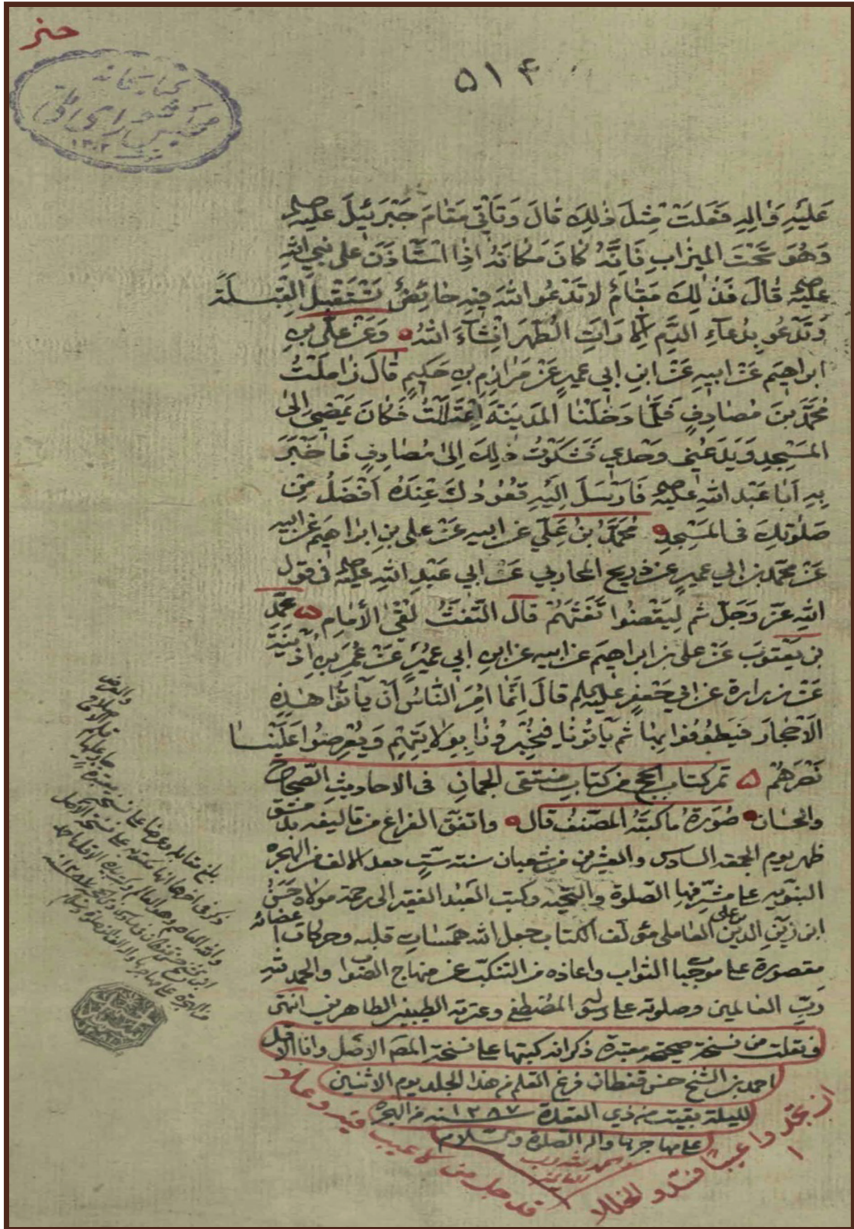 ۵۱۴
کتابخانه
مجلس شورای ملی
۱۳۰۲
عَلَيْهِ وَالِهِ فَفَعَلَتْ مِثْلَ ذٰلِكَ قَالَ وَتَأْتِي مَقَامَ جَبْرَئِيلَ عَلَيْهِ
وَهُوَ تَحْتَ الميزَابِ فَاِنَّهُ كَانَ مَكَانَهُ اذِا اسْتَأذَنَ عَلى نَبِيِّ اللهِ
عَلَيْهِ قَالَ فَذٰلِكَ مَقَامٌ لا تَدْعُو اللهَ فيهِ حَائِضٌ تَسْتَقْبِلُ القِبْلَةَ
وَتَدْعُو بِدُعَآءِ الدَّمِ اِلّا رَاَتِ الطُهْرَ اِنْشَآءَ اللهُ وَعَنْ عَلِيِّ بنِ
ابراهيمَ عَنْ ابيهِ عَنْ ابنِ ابي عُميرٍ عَنْ مَرَازِمِ بنِ حَكيمٍ قَالَ زَامَلْتُ
مُحَمَّدَ بنَ مُصَادِفٍ فَلَمَّا دَخَلْنَا المَدينَةَ اِعْتَلَلْتُ فَكَانَ يَمْضي اِلى
المَسْجِدِ وَيَدَعُني وَحْدي فَشَكَوْتُ ذٰلِكَ اِلى مُصَادِفٍ فَاَخْبَرَ
بِهِ اَبَا عَبْدِ اللهِ عَلَيْهِ فَاَرْسَلَ اِلَيْهِ قُعُودُكَ عِنْدَهُ اَفْضَلُ مِنْ
صَلوٰتِكَ في المَسْجِدِ مُحَمَّدُ بنُ عَليٍّ عن ابيه عَنْ علي بنِ ابراهيمَ عن ابيه
عَنْ محمّد بن ابي عميرٍ عن ذريح المحاربي عَنْ ابي عَبْدِ اللهِ عليه في قول
اللهِ عزّ وَجَلَّ ثم لِيَقْضُوا تَفَثَهُمْ قالَ التَّفَثُ لُقيُ الأمامِ محمَّد
بن يَعْقوبَ عَنْ علي بن ابراهيمَ عن ابيه عن ابنِ ابي عُميرٍ عَنْ عُمَرَ بنِ اُذَيْنَةَ
عَنْ زرارةَ عن ابي جَعْفَرٍ عليه قالَ اِنَّمَا اُمِرَ النَّاسُ اَنْ يَأتُوا هٰذِهِ
الاَحْجَارَ فَيَطوُفُوا بِهَا ثم يَأتُونَا فَيُخْبِرُونَا بِوَلايَتِهِمْ وَيَعْرِضُوا عَلَيْنَا
نَصْرَهُمْ تم كتاب الحج من كتابِ منتقى الجمان في الاحاديثِ الصّحاح
والحسان صُورَةُ ما كتبهُ المصنّفُ قال واتفق الفراغ من تاليفه بدمشق
ظهر يوم الجمعه السادس والعشرين من شعبان سنه ستٍّ بعد الالف من الهجره
النبويه على مشرّفها الصلوة والتحيّه وكتب العَبْدُ الفقير الى رحمة مولاه حَسَنُ
ابن زَينِ الدّينِ بن علي العاملي مؤلف الكتاب جعل الله همسات قلبه وحركات اعضائه
مقصورة على موجبات الثواب واعاذه من التنكّب عن منهاج الصّواب والحمد لله
ربّ العالمين وصلوته على رسوله المصْطفى وعترته الطيّبين الطاهرين انتهى
ونقلت من نسخة صحيحة معتبرة ذكر انه كتبها على نسخة المصم الاصْل وانا الاقل
احمد بن الشيخ حسن قفطان فرغ القلم من هذا المجلد يوم الاثنين
لليلة بقيت من ذي القعدة ١٢٨٧ سنه من الهجرة
على مهاجرها واله الصلوة والسلام
ان تجد عيبا فسدّ الخللا
قد جل من لا عيب فيه وعلا